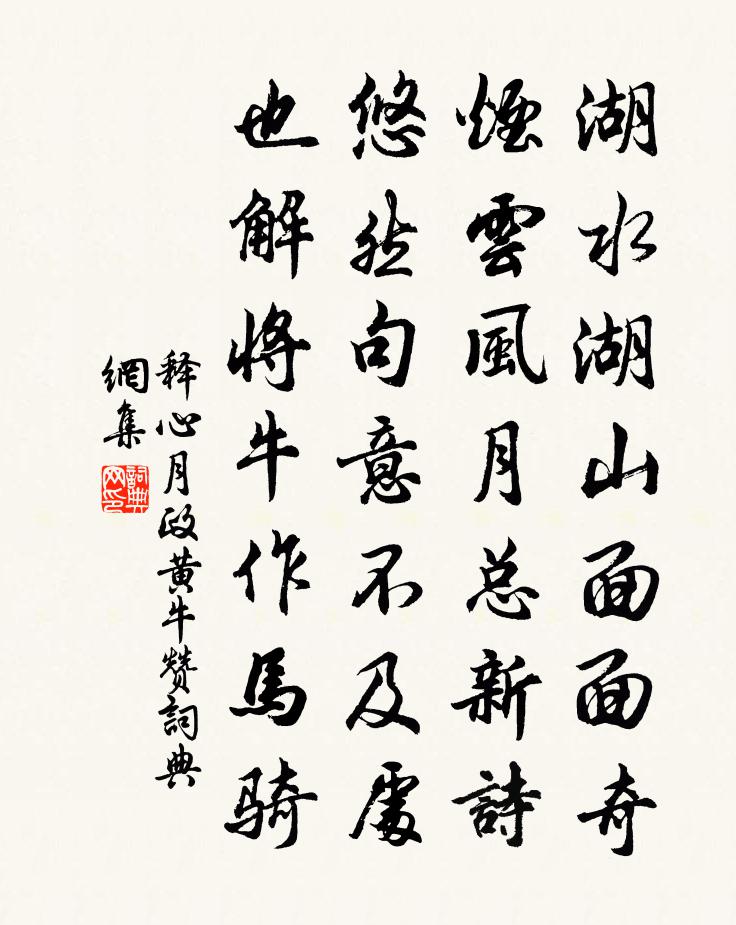 湖水湖山面面奇
煙雲風月总新詩
悠然句意不及處
也解將牛作馬骑
释心月政黄牛赞詞典
網集
詞典
网印